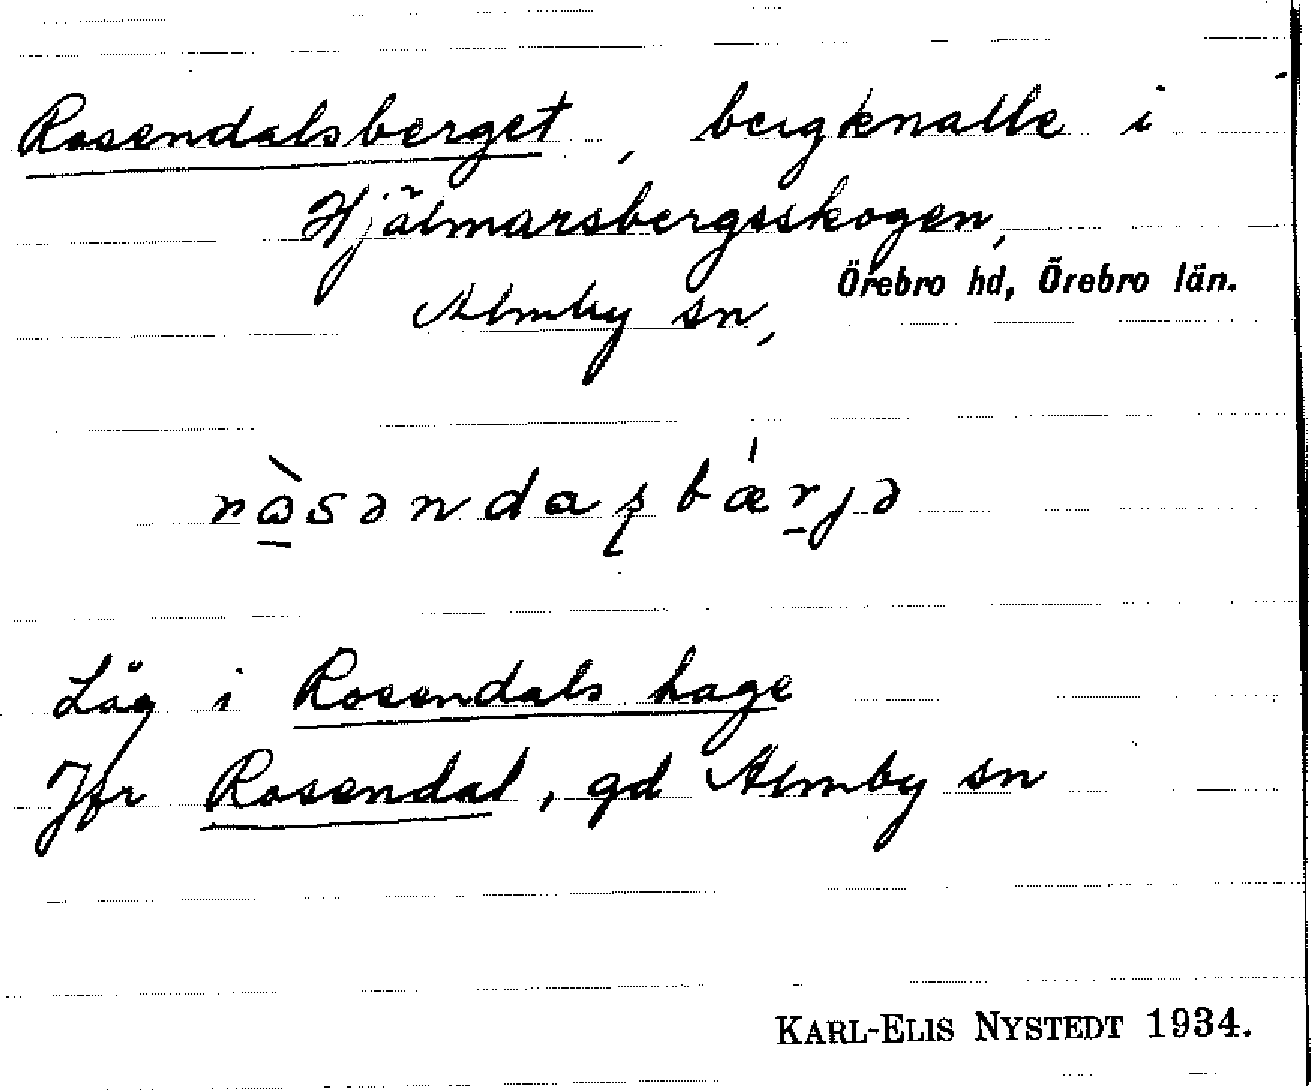 Rosendalsberget, bergknalle i
Hjälmarsbergsskogen,
Almby sn, Örebro hd, Örebro län.
rὼ̱səndaʂbǽr̠jə
Låg i Rosendals hage
Jfr Rosendal, gd Almby sn
KARL-ELIS NYSTEDT 1934.